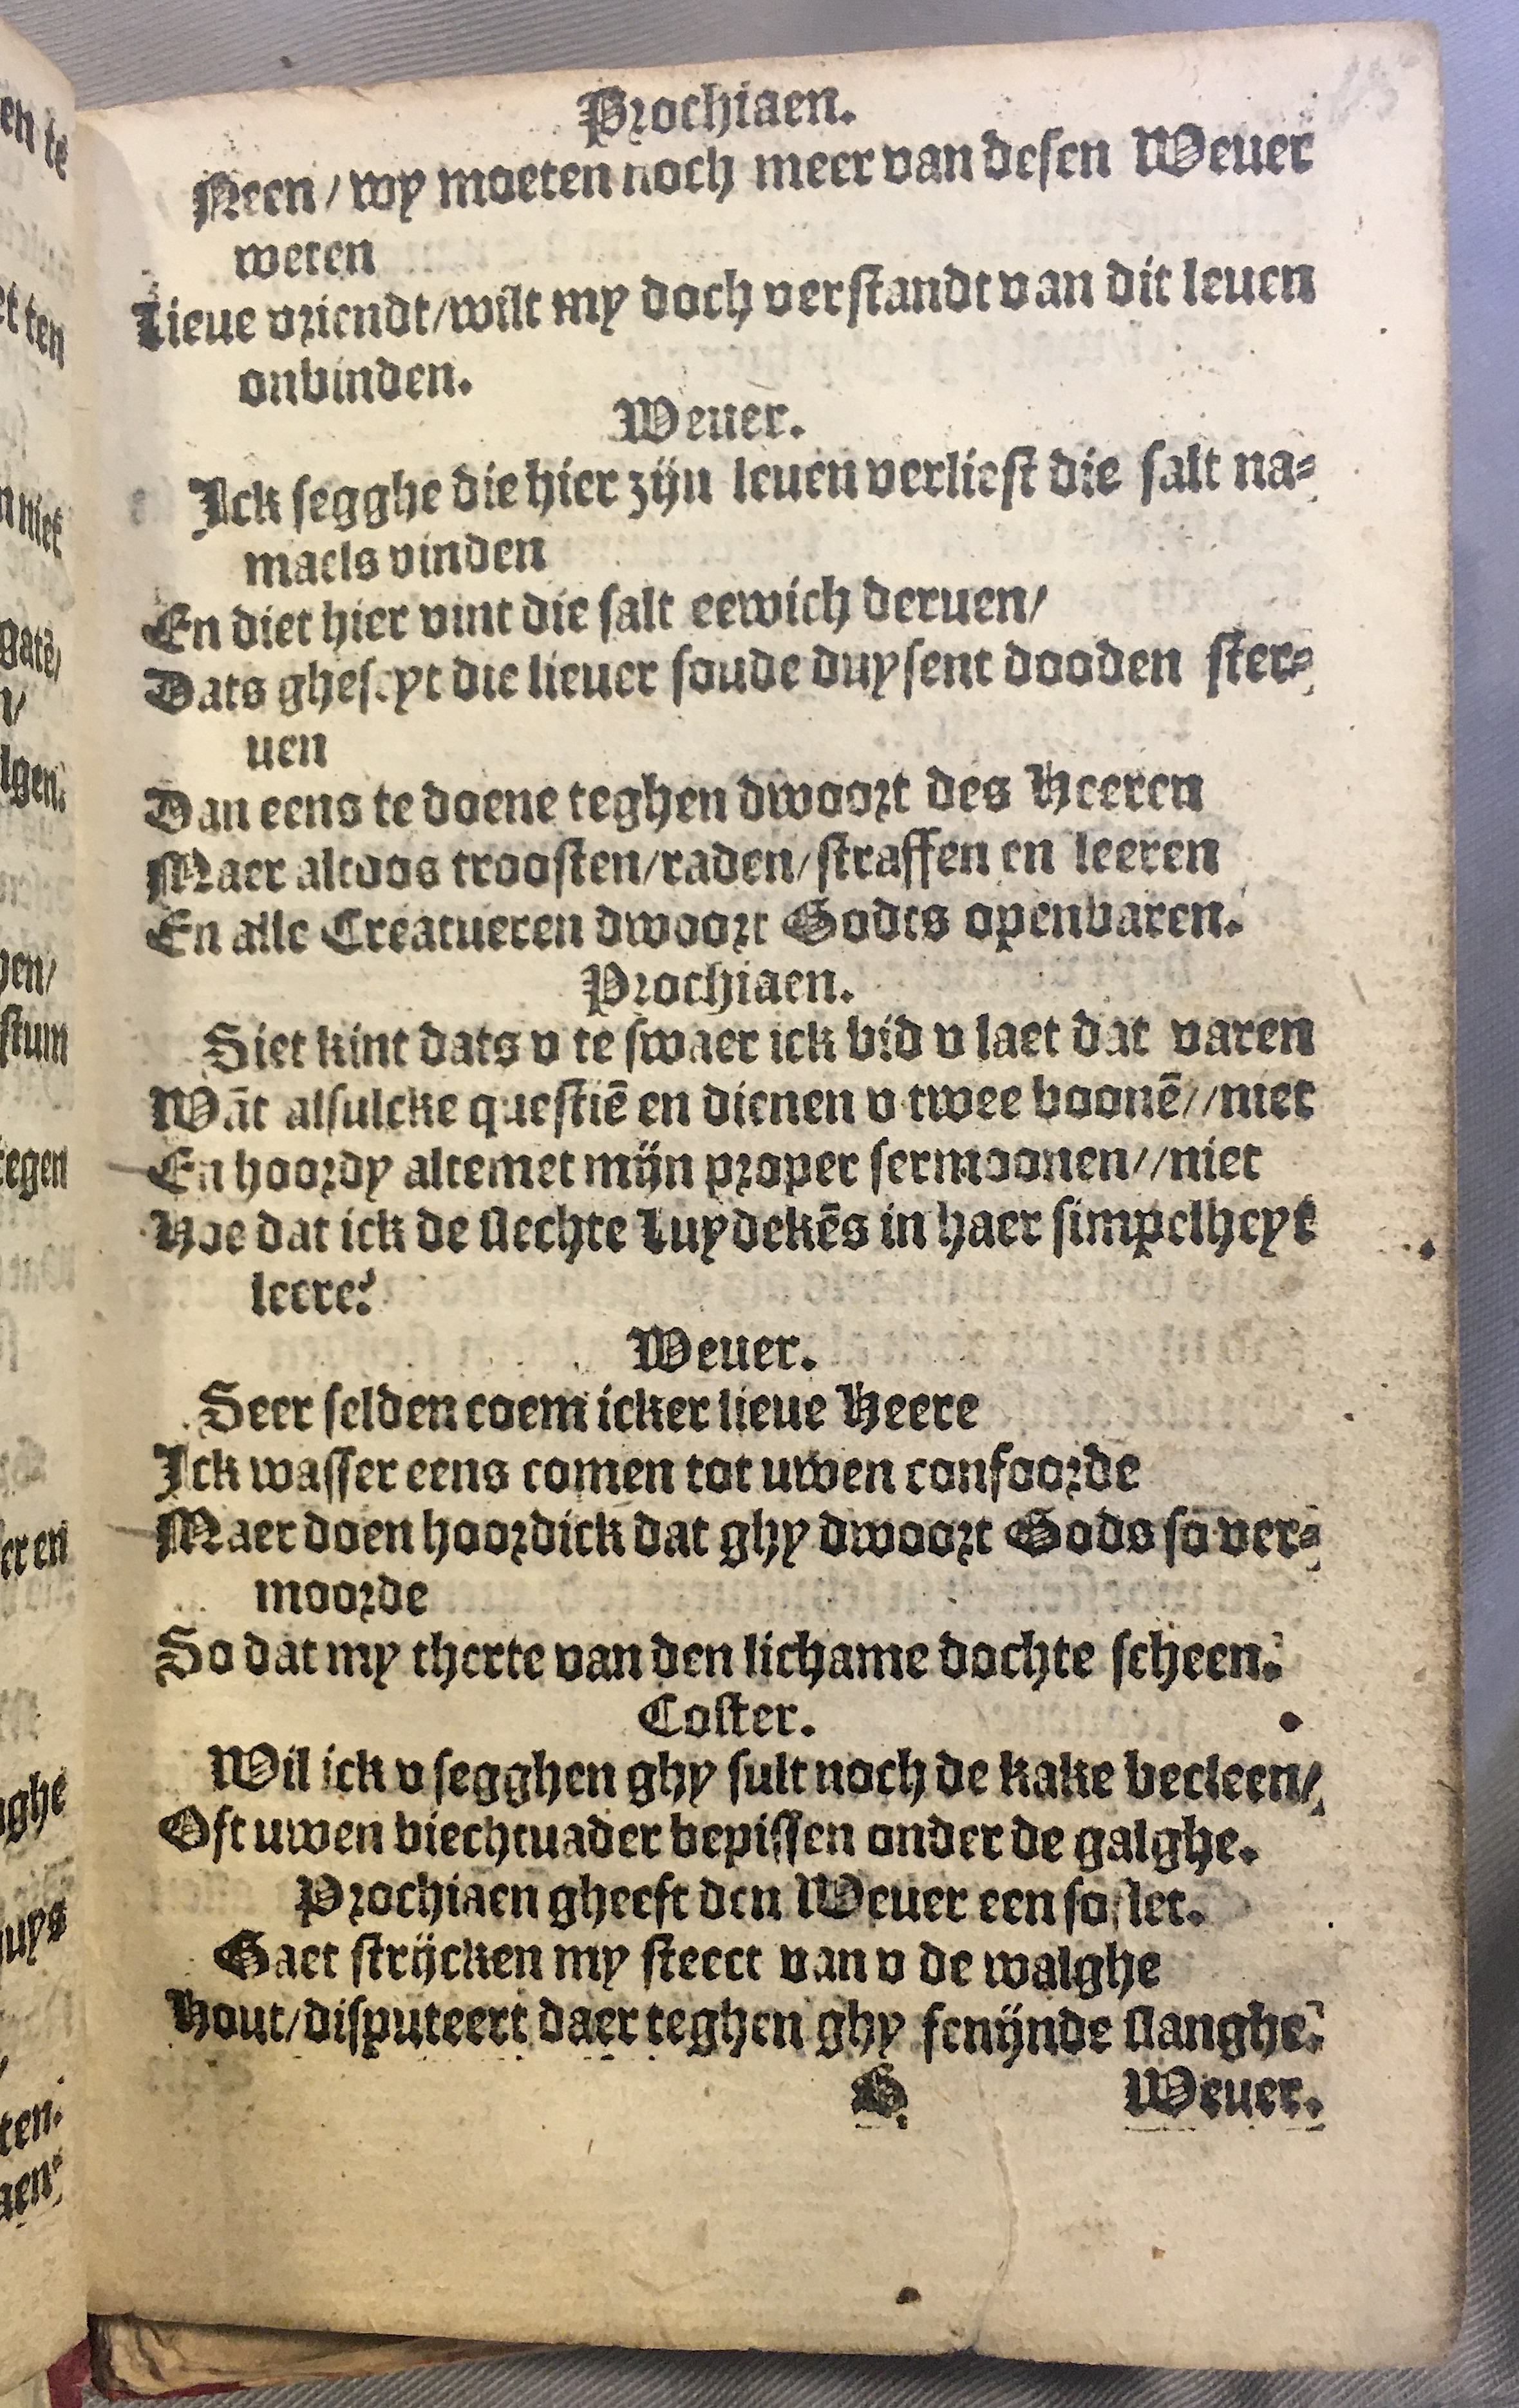 Prochiaen.
Neen / wy moeten noch meer van desen Weuer
weten
Lieue vriendt/wilt my doch verstandt van dit leuen
onbinden.
Weuer.
Ick segghe die hier zijn leuen verliest die salt na=
maels vinden
En diet hier vint die salt eewich deruen/
Dats gheseyt die lieuer soude duysent dooden ster=
uen
Dan eens te doene teghen dwoort des Heeren
Maer altoos troosten/raden/straffen en leeren
En alle Creatueren dwoort Godts openbaren.
Prochiaen.
Siet kint dats v te swaer ick bid v laet dat varen
Wāt alsulcke questiē en dienen v twee boonē//niet
En hoordy altemet mijn proper sermoonen//niet
Hoe dat ick de slechte Luydekēs in haer simpelheyt
leere?
Weuer.
Seer selden coem icker lieue Heere
Ick wasser eens comen tot uwen confoorde
Maer doen hoordick dat ghy dwoort Gods so ver=
moorde
So dat my therte van den lichame dochte scheen.
Coster.
Wil ick v segghen ghy sult noch de kake becleen/
Oft uwen biechtuader bepissen onder de galghe.
Prochiaen gheeft den Weuer een soflet.
Gaet strijcken my steect van v de walghe
Hout/disputeert daer teghen ghy fenijnde slanghe.
G. Weuer.
en te
niet
gatē/
lgen.
stum
tegen
er en
ghe
uys
ten.